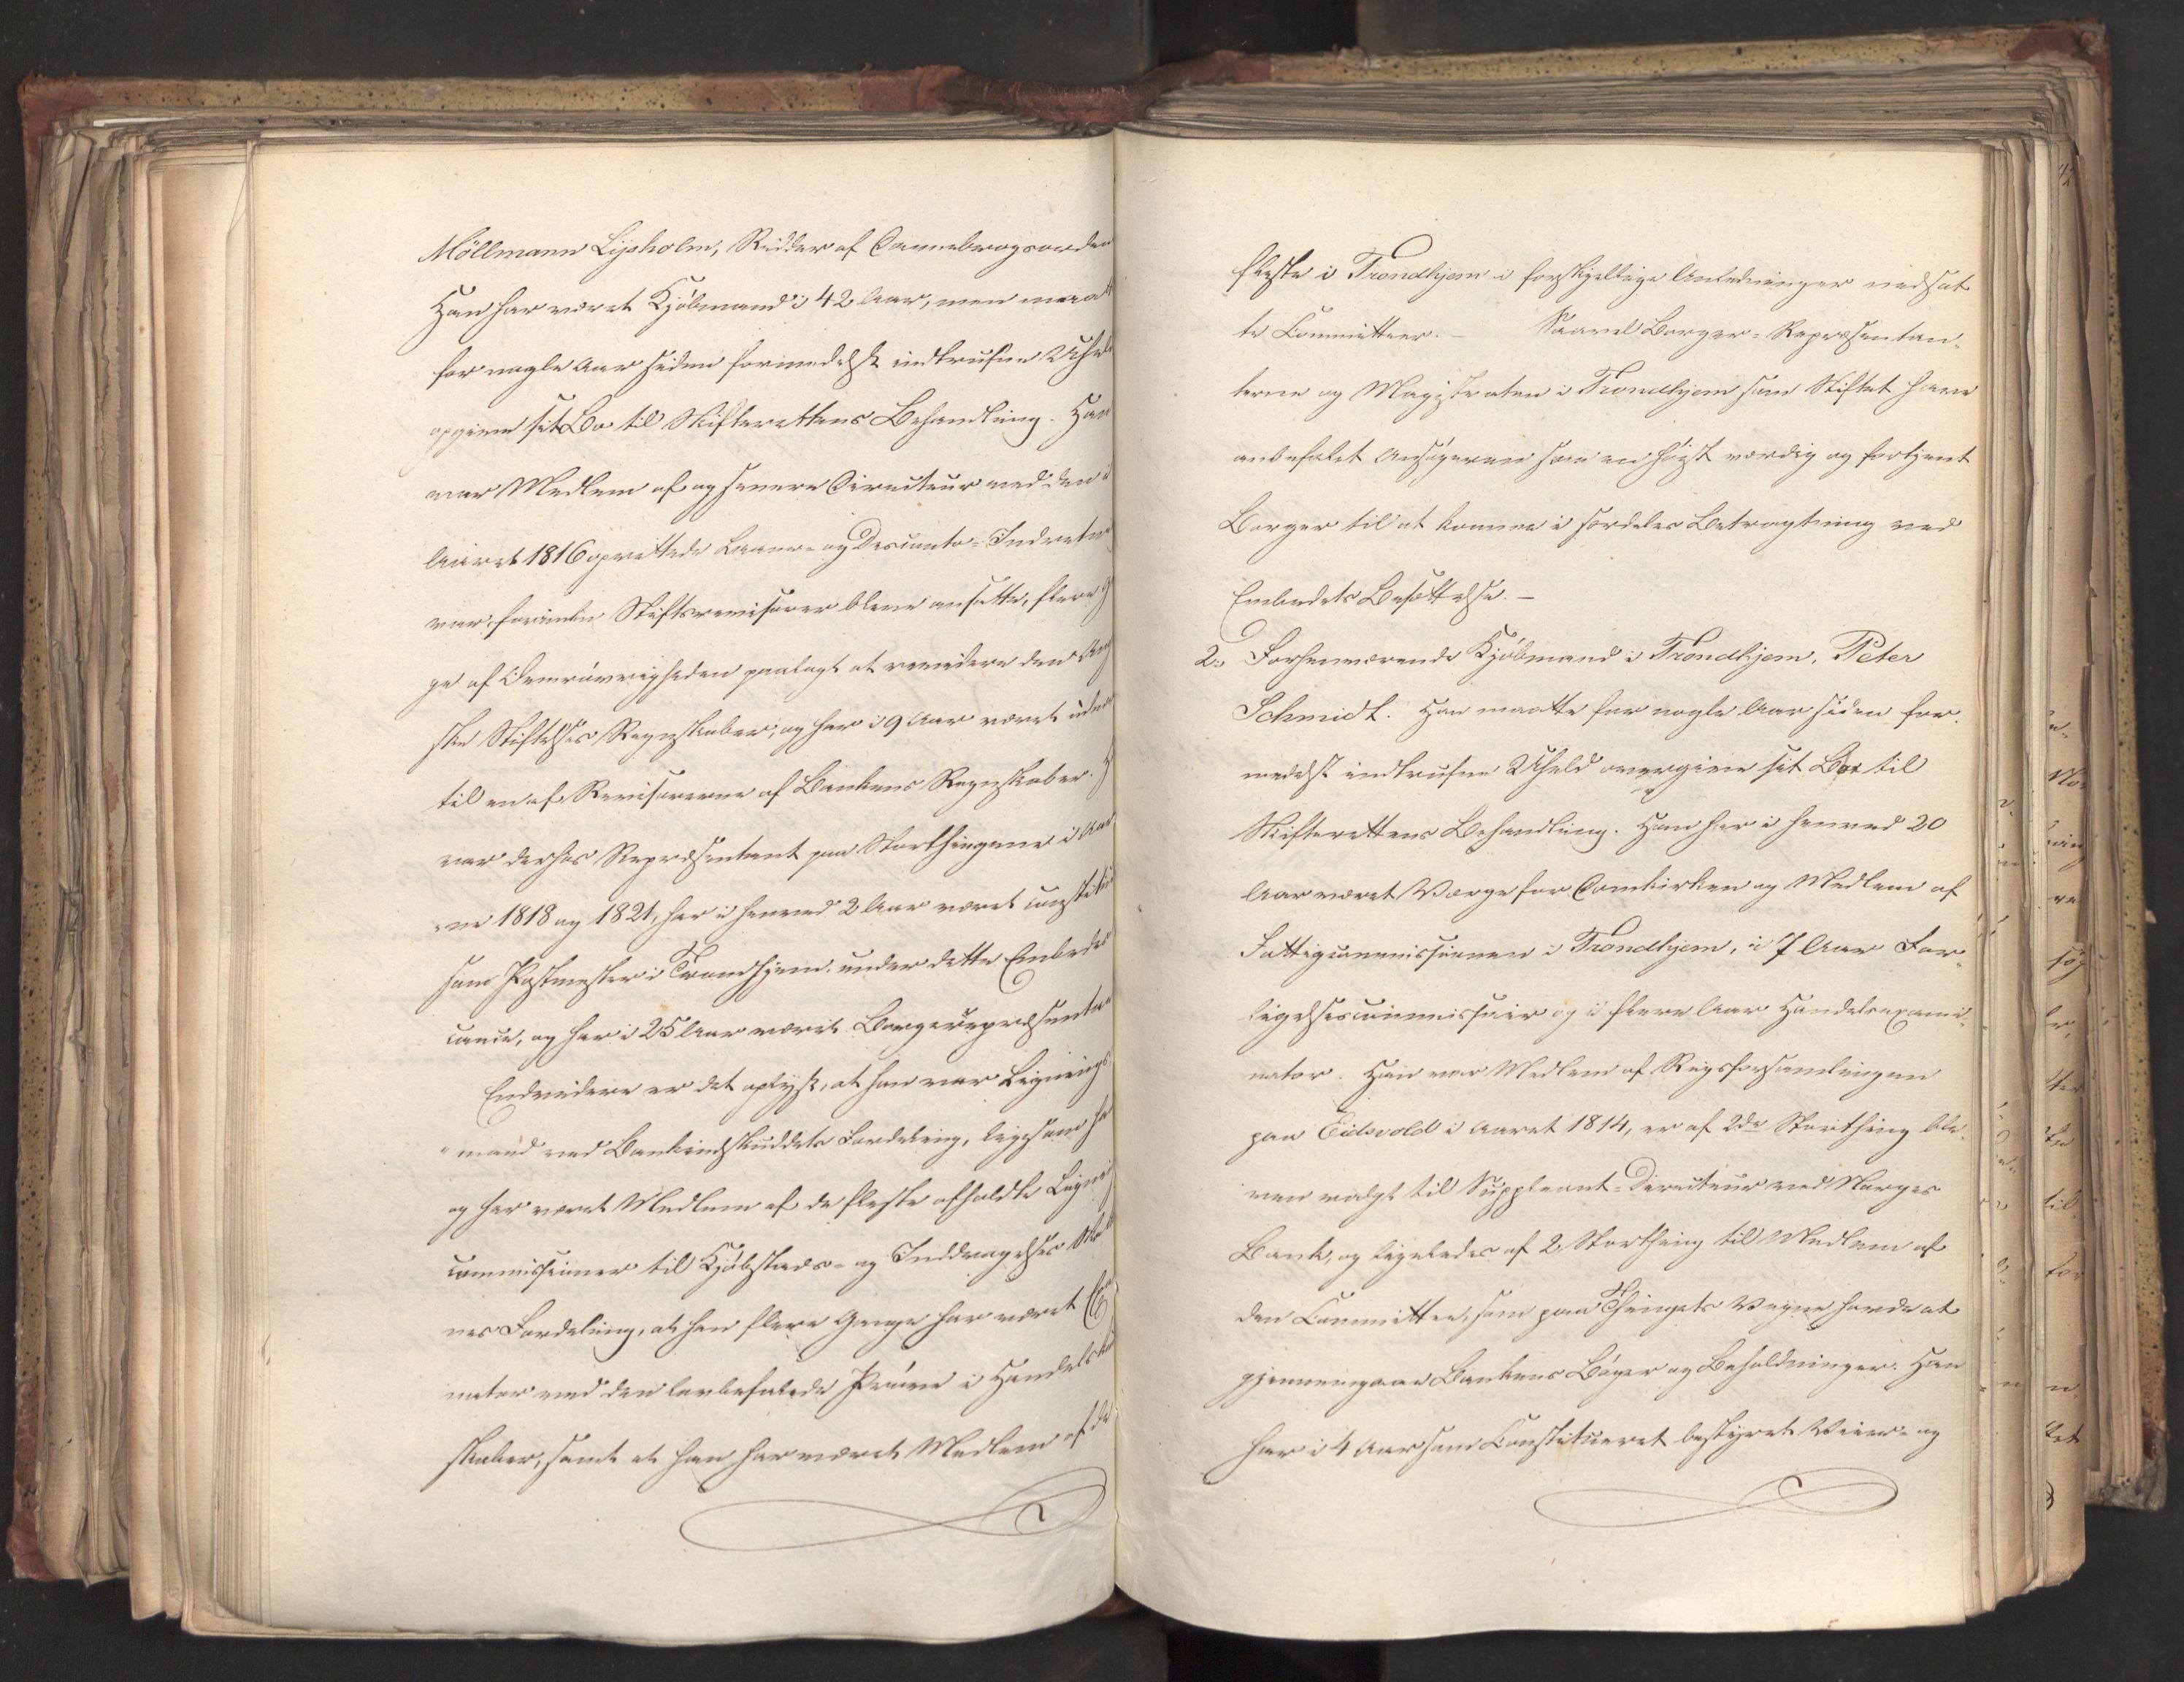 Möllmann Lysholm, Ridder af Dannebrogsorden
Han har været Kjöbmand i 42 Aar, men maat
for nogle Aar siden formedelst indtrufne Uhe
opgive sit Bo til Skifterettens Behandling. Han
var Medlem af og senere Directeur ved den i
Aaret 1816 oprettede Laane- og Disconto-Indretn
var, forinden Stiftsrevisorer bleve ansatte, flere G
ge af Överövrigheden paalagt at revidere den
ske Stiftelses Regnskaber, og har i 9 Aar været
til en af Revisorerne af Bankens Regnskaber. H
var derhos Repræsentant paa Storthingene i Aar
ne 1818 og 1821, har i henved 2 Aar været constitu
som Postmester i Trondhjem, under dette Embedes
cance, og har i 25 Aar været Borgerrepræsenta
Endvidere er det oplyst, at han var Ligning
mand ved Bankindskuddets Fordeling, ligesom ha
og har været Medlem af de fleste afholdte Ligni
commissioner til Kjöbstads- og Inddragelses Ska
nes Fordeling, at han flere Gange har været E
nator ved den lovbefalede Pröve i Handelsku
skaber, samt at han har været Medlem af de
fleste i Trondhjem i forskjellige Anledninger nedsat
te Committeer. – Saavel Borger-Repræsentan-
terne og Magistraten i Trondhjem som Stiftet have
anbefalet Ansögeren som en höist værdig og fortjent
Borger til at komme i særdeles Betragtning ved
Embedets Besættelse. –
2. Forhenværende Kjöbmand i Trondhjem, Peter
Schmidt. Han maatte for nogle Aar siden for-
medelst indtrufne Uheld overgive sit Boe til
Skifterettens Behandling. Han har i henved 20
Aar været Værge for Domkirken og Medlem af
Fattigcommissionen i Trondhjem, i 7 Aar For-
ligelsescommissair og i flere Aar Handelsexami-
nator. Han var Medlem af Rigsforsamlingen
paa Eidsvold i Aaret 1814, er af 2de Storthing ble-
ven valgt til Suppleant-Directeur ved Norges
Bank, og ligeledes af 2 Storthing til Medlem af
den Committee, som paa Thingets Vegne havde at
gjennemgaae Bankens Böger og Beholdninger. Han
har i 4 Aar som Constitueret bestyret Veier- og